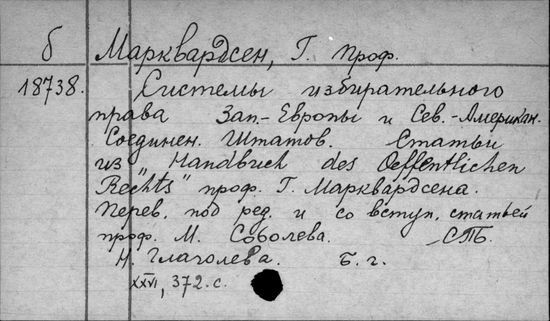 б Марквардсен, Г. проф.
18738. Системы избирательного
права Зап.-Европы и Сев.-Американ.
Соединен. Штатов. Статьи
из "Handbuch des Oeffentlichen
Rechts" проф. Г. Марквардсена.
Перев. под ред. и со вступ. статьей
проф. М. Соболева. СПБ.
Н. Глаголева. Б. г.
XXVI, 372 с.